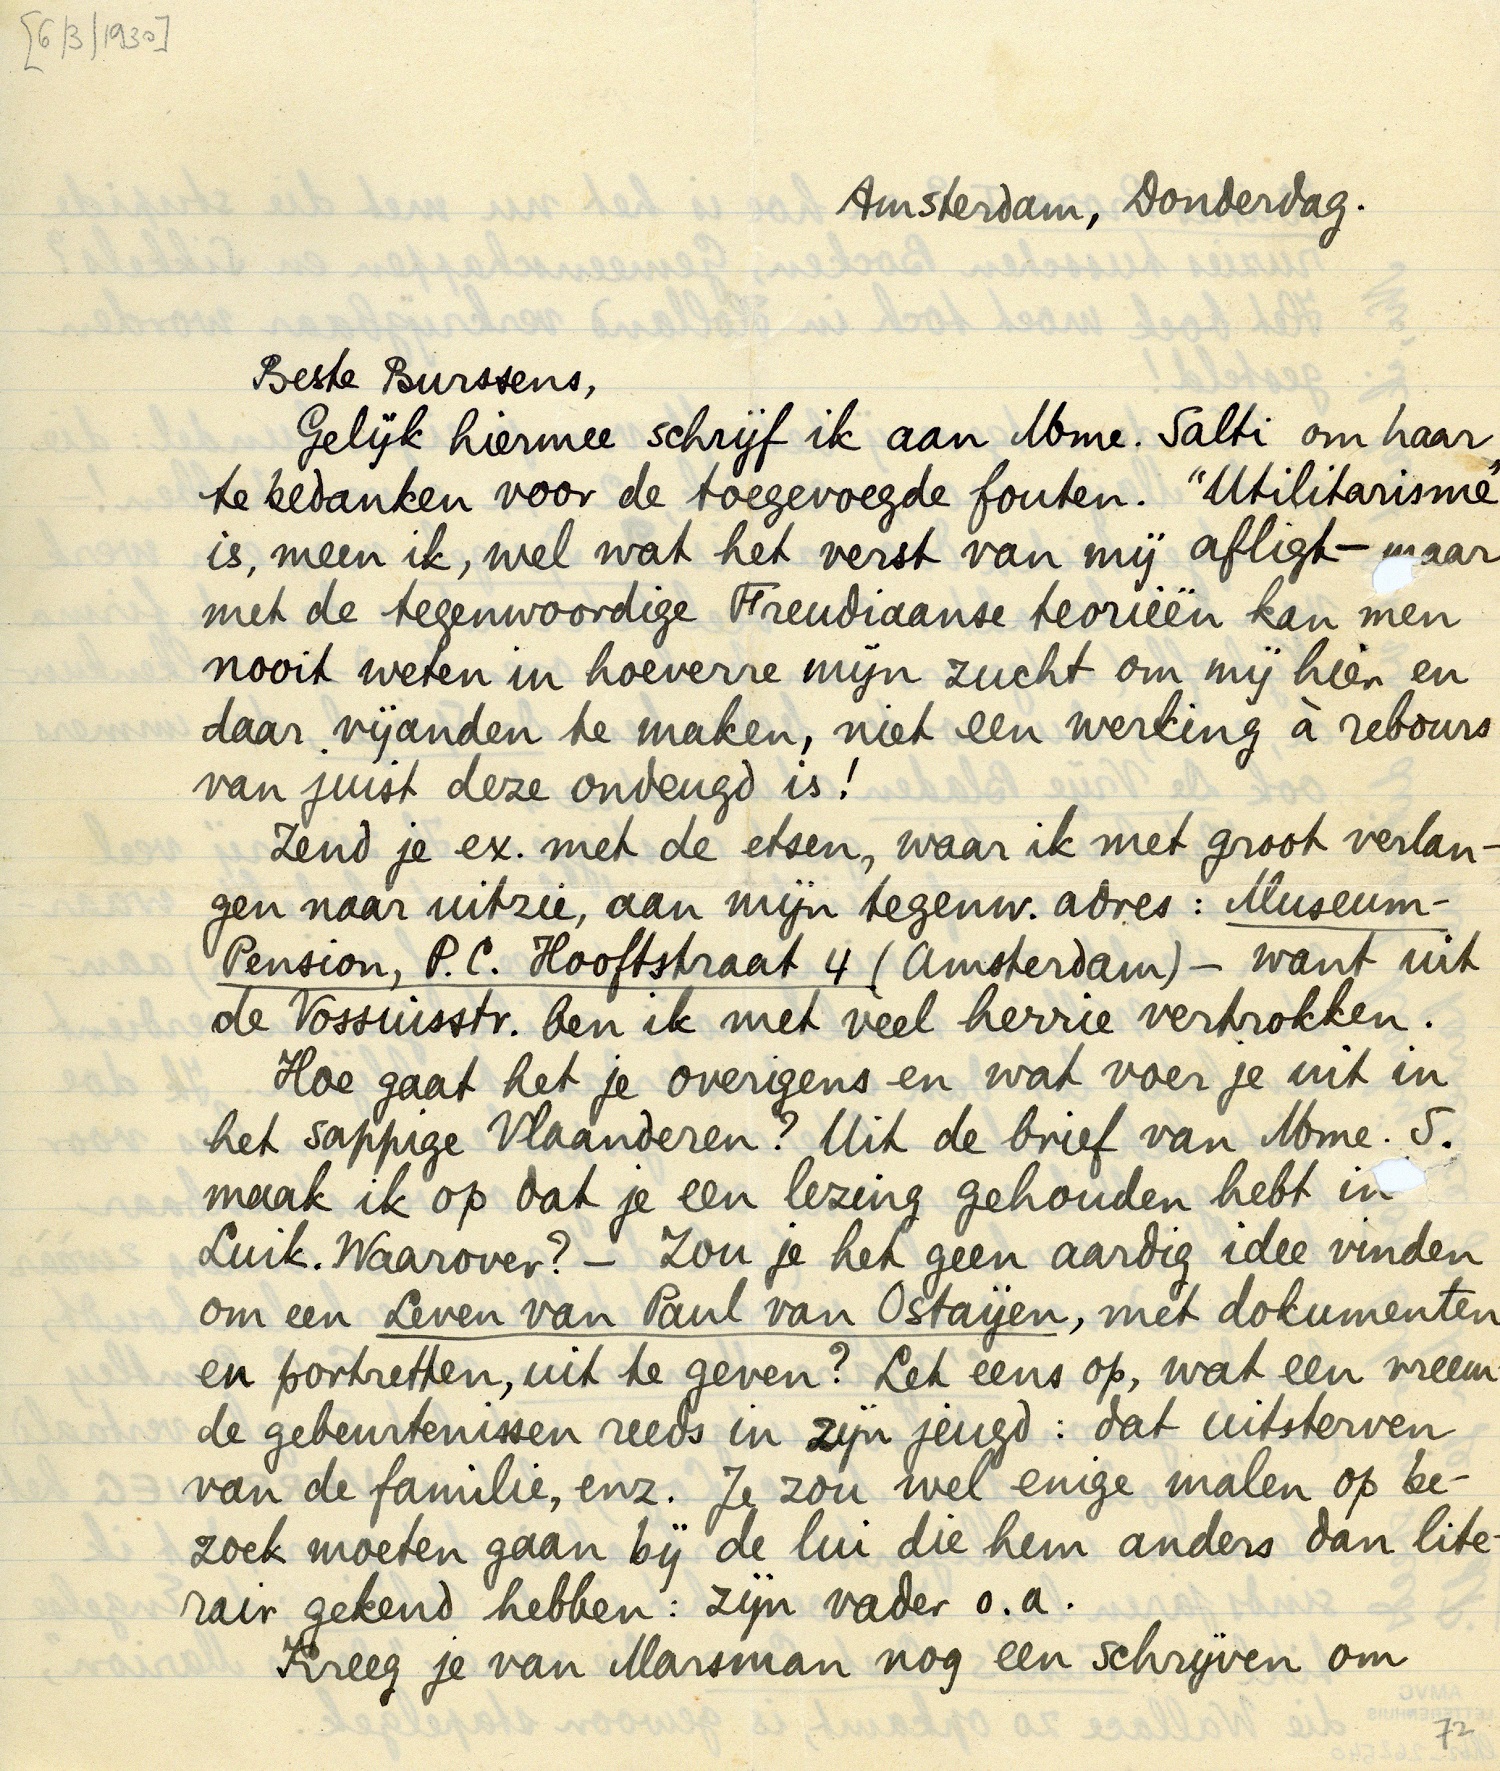 [6/3/1930]
Amsterdam, Donderdag.
Beste Burssens,
Gelijk hiermee schrijf ik aan Mme. Salti om haar
te bedanken voor de toegevoegde fouten. "Utilitarisme"
is, meen ik, wel wat het verst van mij afligt - maar
met de tegenwoordige Freudiaanse teorieën kan men
nooit weten in hoeverre mijn zucht om mij hier en
daar vijanden te maken, niet een werking à rebours
van juist deze ondeugd is!
Zend je ex. met de etsen, waar ik met groot verlan-
gen naar uitzie, aan mijn tegenw. adres: Museum-
Pension, P.C. Hooftstraat 4 (Amsterdam) - want uit
de Vossiusstr. ben ik met veel herrie vertrokken.
Hoe gaat het je overigens en wat voer je uit in
het sappige Vlaanderen? Uit de brief van Mme. S.
maak ik op dat je een lezing gehouden hebt in
Luik. Waarover? - Zou je het geen aardig idee vinden
om een Leven van Paul van Ostaijen, met dokumenten
en portretten, uit te geven? Let eens op, wat een vreem-
de gebeurtenissen reeds in zijn jeugd: dat uitsterven
van de familie, enz. Je zou wel enige malen op be-
zoek moeten gaan bij de lui die hem anders dan lite-
rair gekend hebben: zijn vader o.a.
Kreeg je van Marsman nog een schrijven om
72